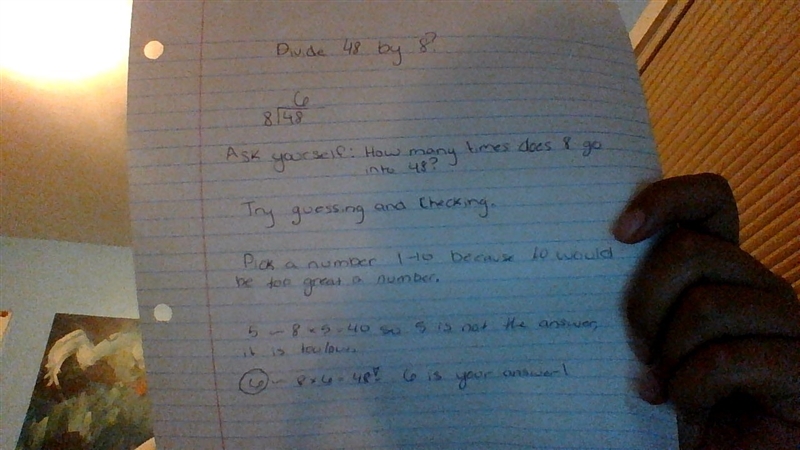 Divide 48 by 8?
6
8 48
Ask yourself: How many times does 8 go
into 48?
Try guessing and checking.
Pick a number 1-10 because 10 would
be too great a number.
5 - 8 x 5 = 40 so 5 is not the answer,
it is too low.
6 - 8 x 6 = 48? 6 is your answer!